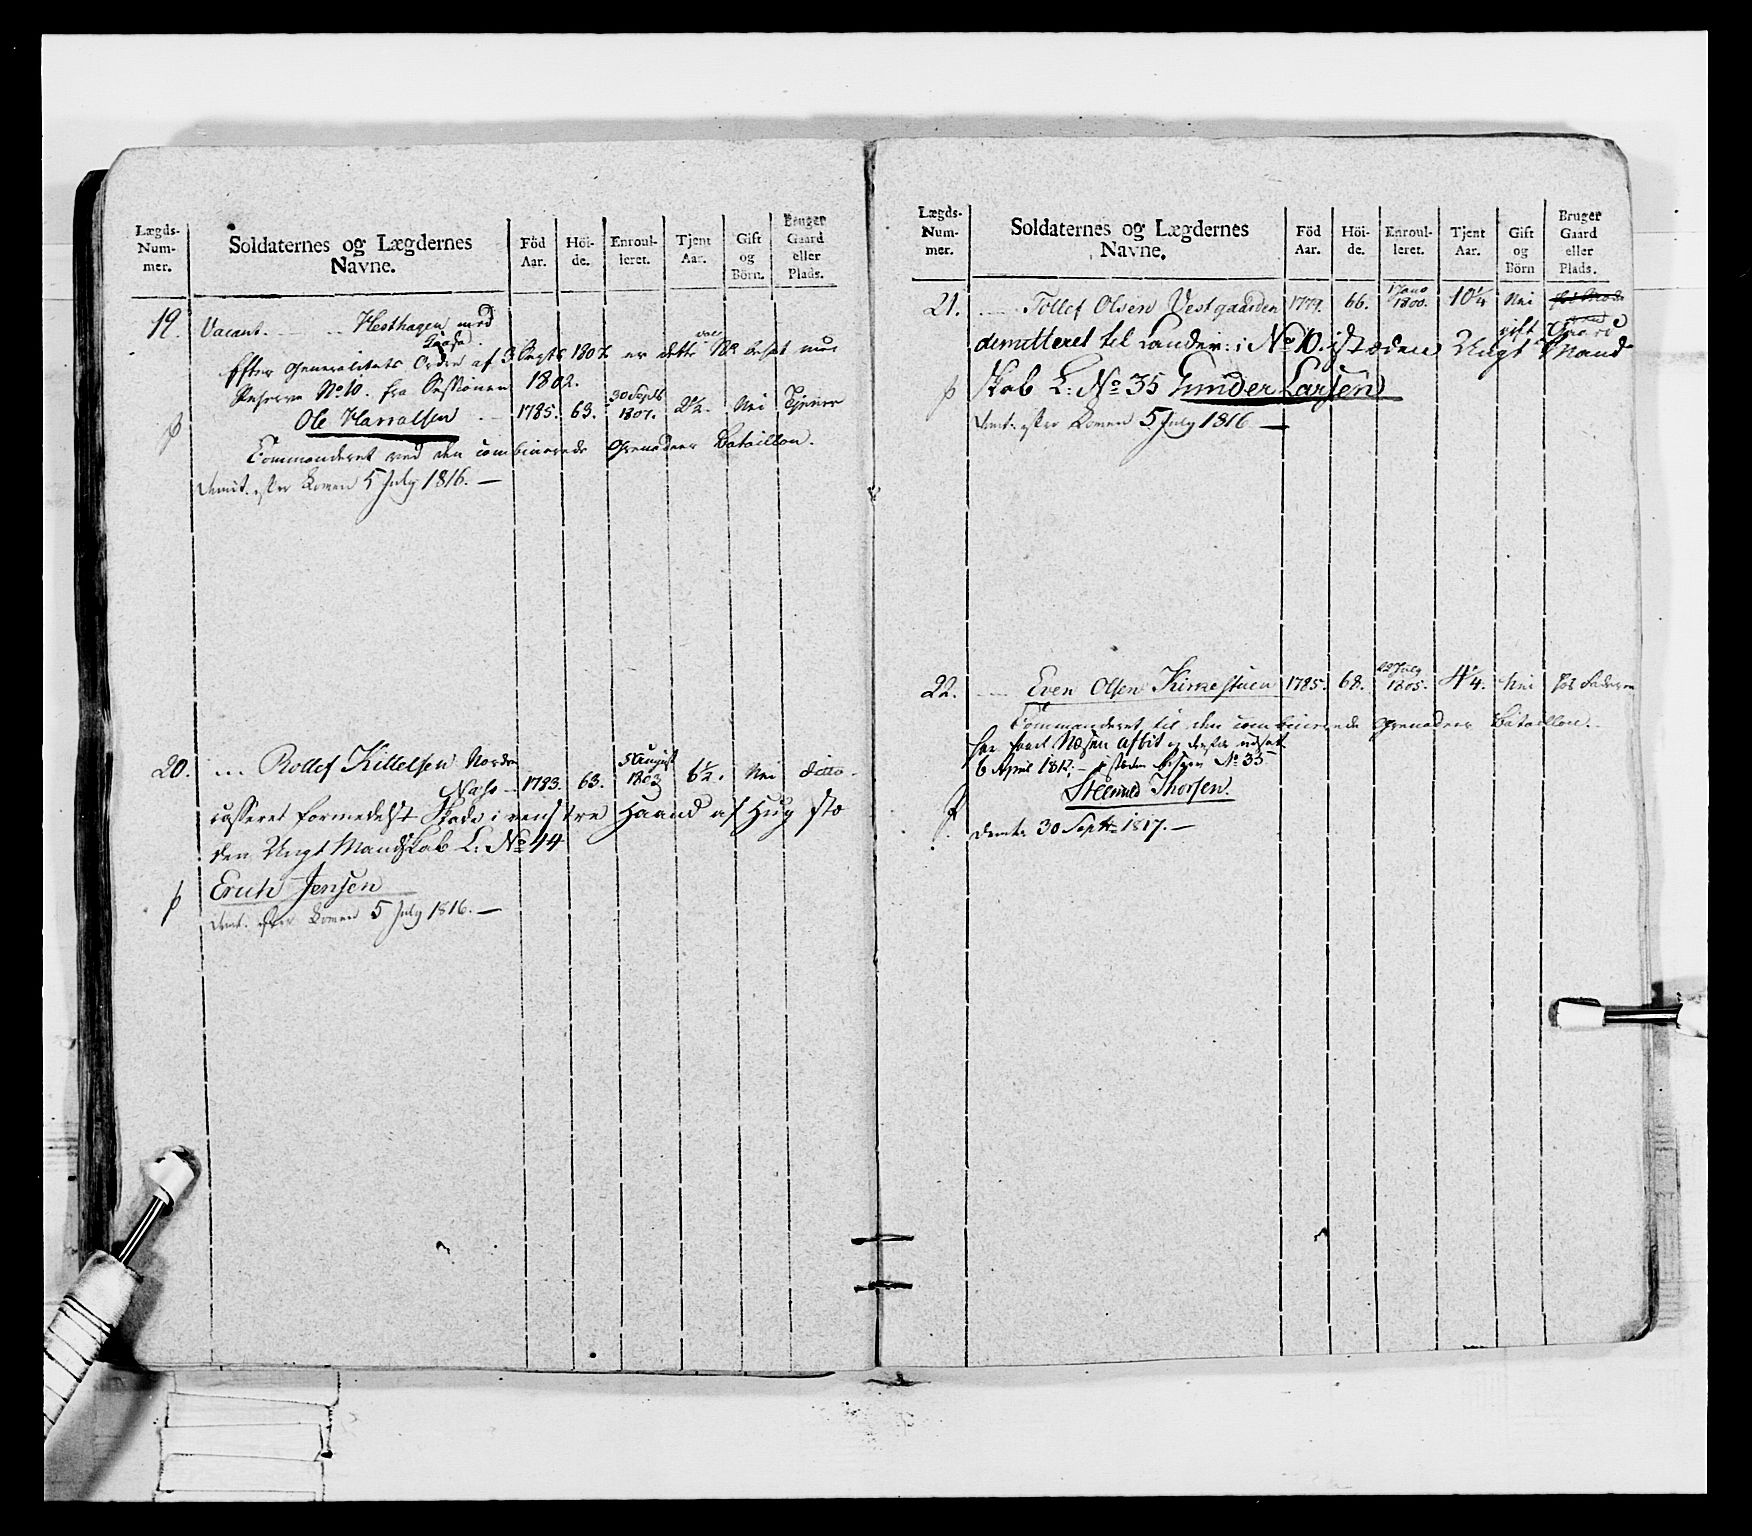 Lægds-
Num-
mer.
Soldaternes og Lægdernes
Navne.
Föd
Aar.
Höi-
de.
Enroul-
leret.
Tjent
Aar.
Gift
og
Börn.
Bruger
Gaard
eller
Plads.
19. Vacant. Hesthagen med
Efter Generalitets Ordre af 3 Septb 1807 er dette No besat med
Reserve No 10. fra Sessionen 1802.
Ole Harralsen 1785. 63. 30 Septb 1807. 2½. Nei Tjener
Commanderet ved den combinerede Grenadeer Bataillon.
Demit. efter Komen 5 July 1816. —
20. Rollef Kittelsen Nordre
Næss 1783. 63. 5 August 1803 6½. Nei ditto.
casseret formedelst Skade i venstre Haand af Hug stæ
den Ungt Mandskab L: No 44
Erich Jensen
Demt. efter Komen 5 July 1816. —
Lægds-
Num-
mer.
Soldaternes og Lægdernes
Navne.
Föd
Aar.
Höi-
de.
Enroul-
leret.
Tjent
Aar.
Gift
og
Börn
Bruger
Gaard
eller
Plads.
21. Tollef Olsen Vestgaarden 1779. 66. 1800. 10¼ Nei
gift
demitteret til Landev: i No 10. istæden Ungt Mand-
skab L: No 35 Gunder Larsen
Demt. efter Komen 5 July 1816 —
22. Even Olsen Kirnestuen 1785. 68. July 1805. 4¼. Nei hos Faderen
Commanderet til den combinerede Grenadeer Bataillon.
6 April 1812, No 35
Steenuld Thorsen.
Demt. 30 Septbr 1817. —